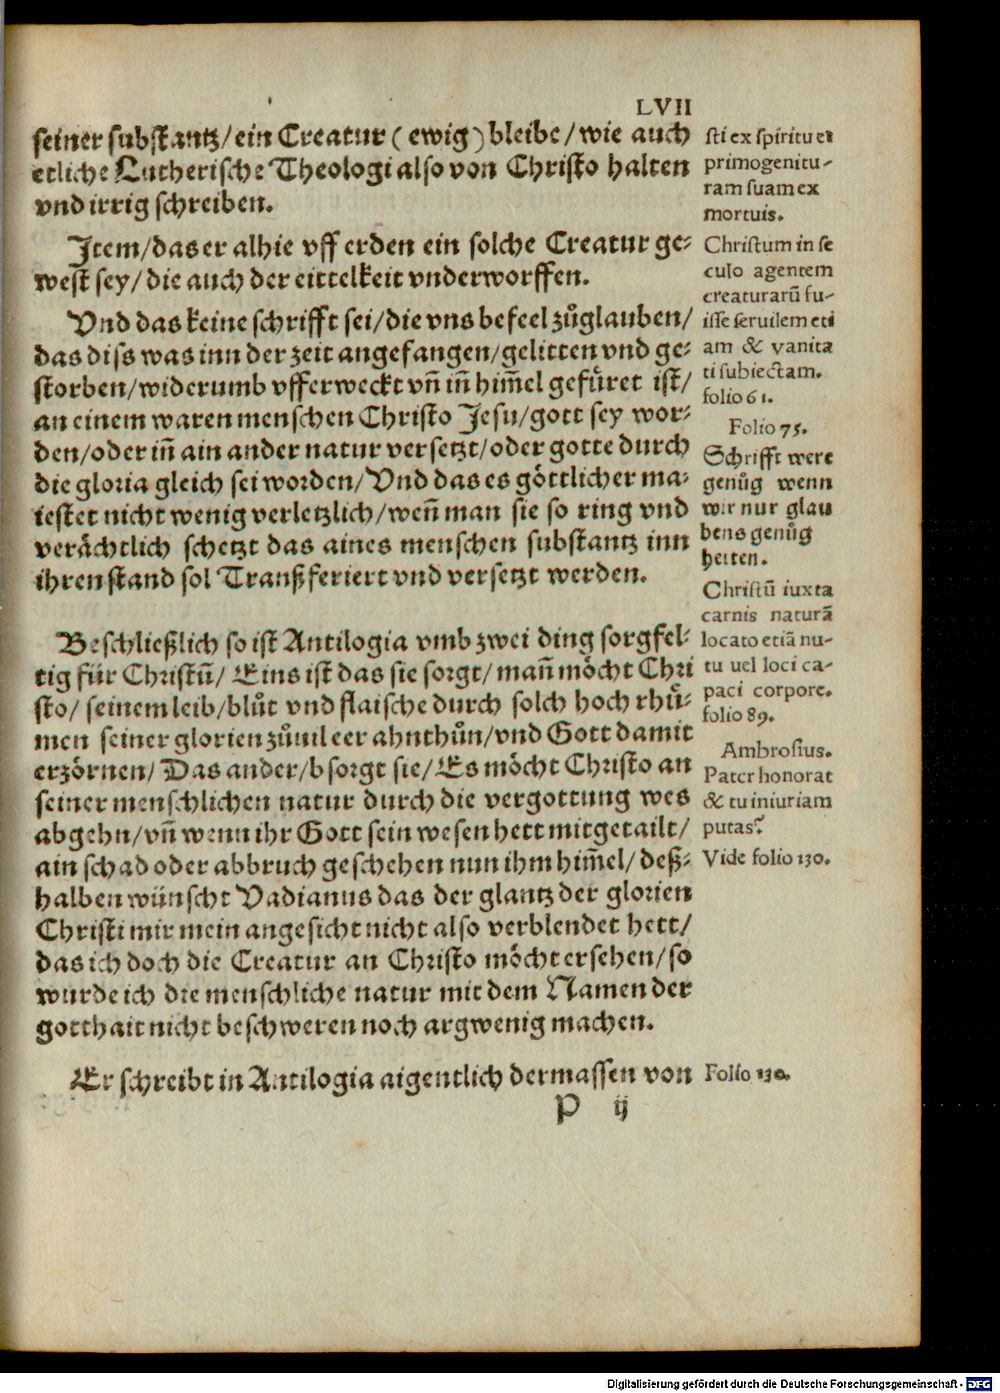 LVII
seiner substantz/ein Creatur (ewig) bleibe/wie auch
etliche Lutherische Theologi also von Christo halten
vnd irrig schreiben.
Item/das er alhie vff erden ein solche Creatur ge⸗
west sey/die auch der eittelkeit vnderworffen.
Vnd das keine schrifft sei/die vns befeel zůglauben/
das diss was inn der zeit angefangen/gelitten vnd ge⸗
storben/widerumb vfferweckt vn̄ in̄ him̄el gefüret ist/
an einem waren menschen Christo Jesu/gott sey wor⸗
den/oder in̄ ain ander natur versetzt/oder gotte durch
die gloria gleich sei worden/Vnd das es göttlicher ma⸗
iestet nicht wenig verletzlich/wen̄ man sie so ring vnd
verächtlich schetzt das aines menschen substantz inn
ihren stand sol Transsferiert vnd versetzt werden.
Beschließlich so ist Antilogia vmb zwei ding sorgfel⸗
tig für Christū/ Eins ist das sie sorgt/man̄ möcht Chri
sto/ seinem leib/blůt vnd flaische durch solch hoch rhů⸗
men seiner glorien zůuil eer ahnthůn/vnd Gott damit
erzörnen/ Das ander/bsorgt sie/Es möcht Christo an
seiner menschlichen natur durch die vergottung wes
abgehn/vn̄ wenn ihr Gott sein wesen hett mitgetailt/
ain schad oder abbruch geschehen nun ihm him̄el/deß⸗
halben wünscht Vadianus das der glantz der glorien
Christi mir mein angesicht nicht also verblendet hett/
das ich doch die Creatur an Christo möcht ersehen/so
wurde ich die menschliche natur mit dem Namen der
gotthait nicht beschweren noch argwenig machen.
Er schreibt in Antilogia aigentlich dermassen von
P ij
sti ex spiritu et
primogenitu-
ram suam ex
mortuis.
Christum in se
culo agentem
creaturarū fu-
isse seruilem eti
am & vanita
ti subiectam.
folio 61.
Folio 75.
Schrifft were
genůg wenn
wir nur glau
bens genůg
hetten.
Christū iuxta
carnis naturā
locato etiā nu-
tu uel loci ca-
paci corpore.
folio 89.
Ambrosius.
Pater honorat
& tu iniuriam
putas?
Vide folio 130.
Folio 130.
Digitalisierung gefördert durch die Deutsche Forschungsgemeinschaft - DFG